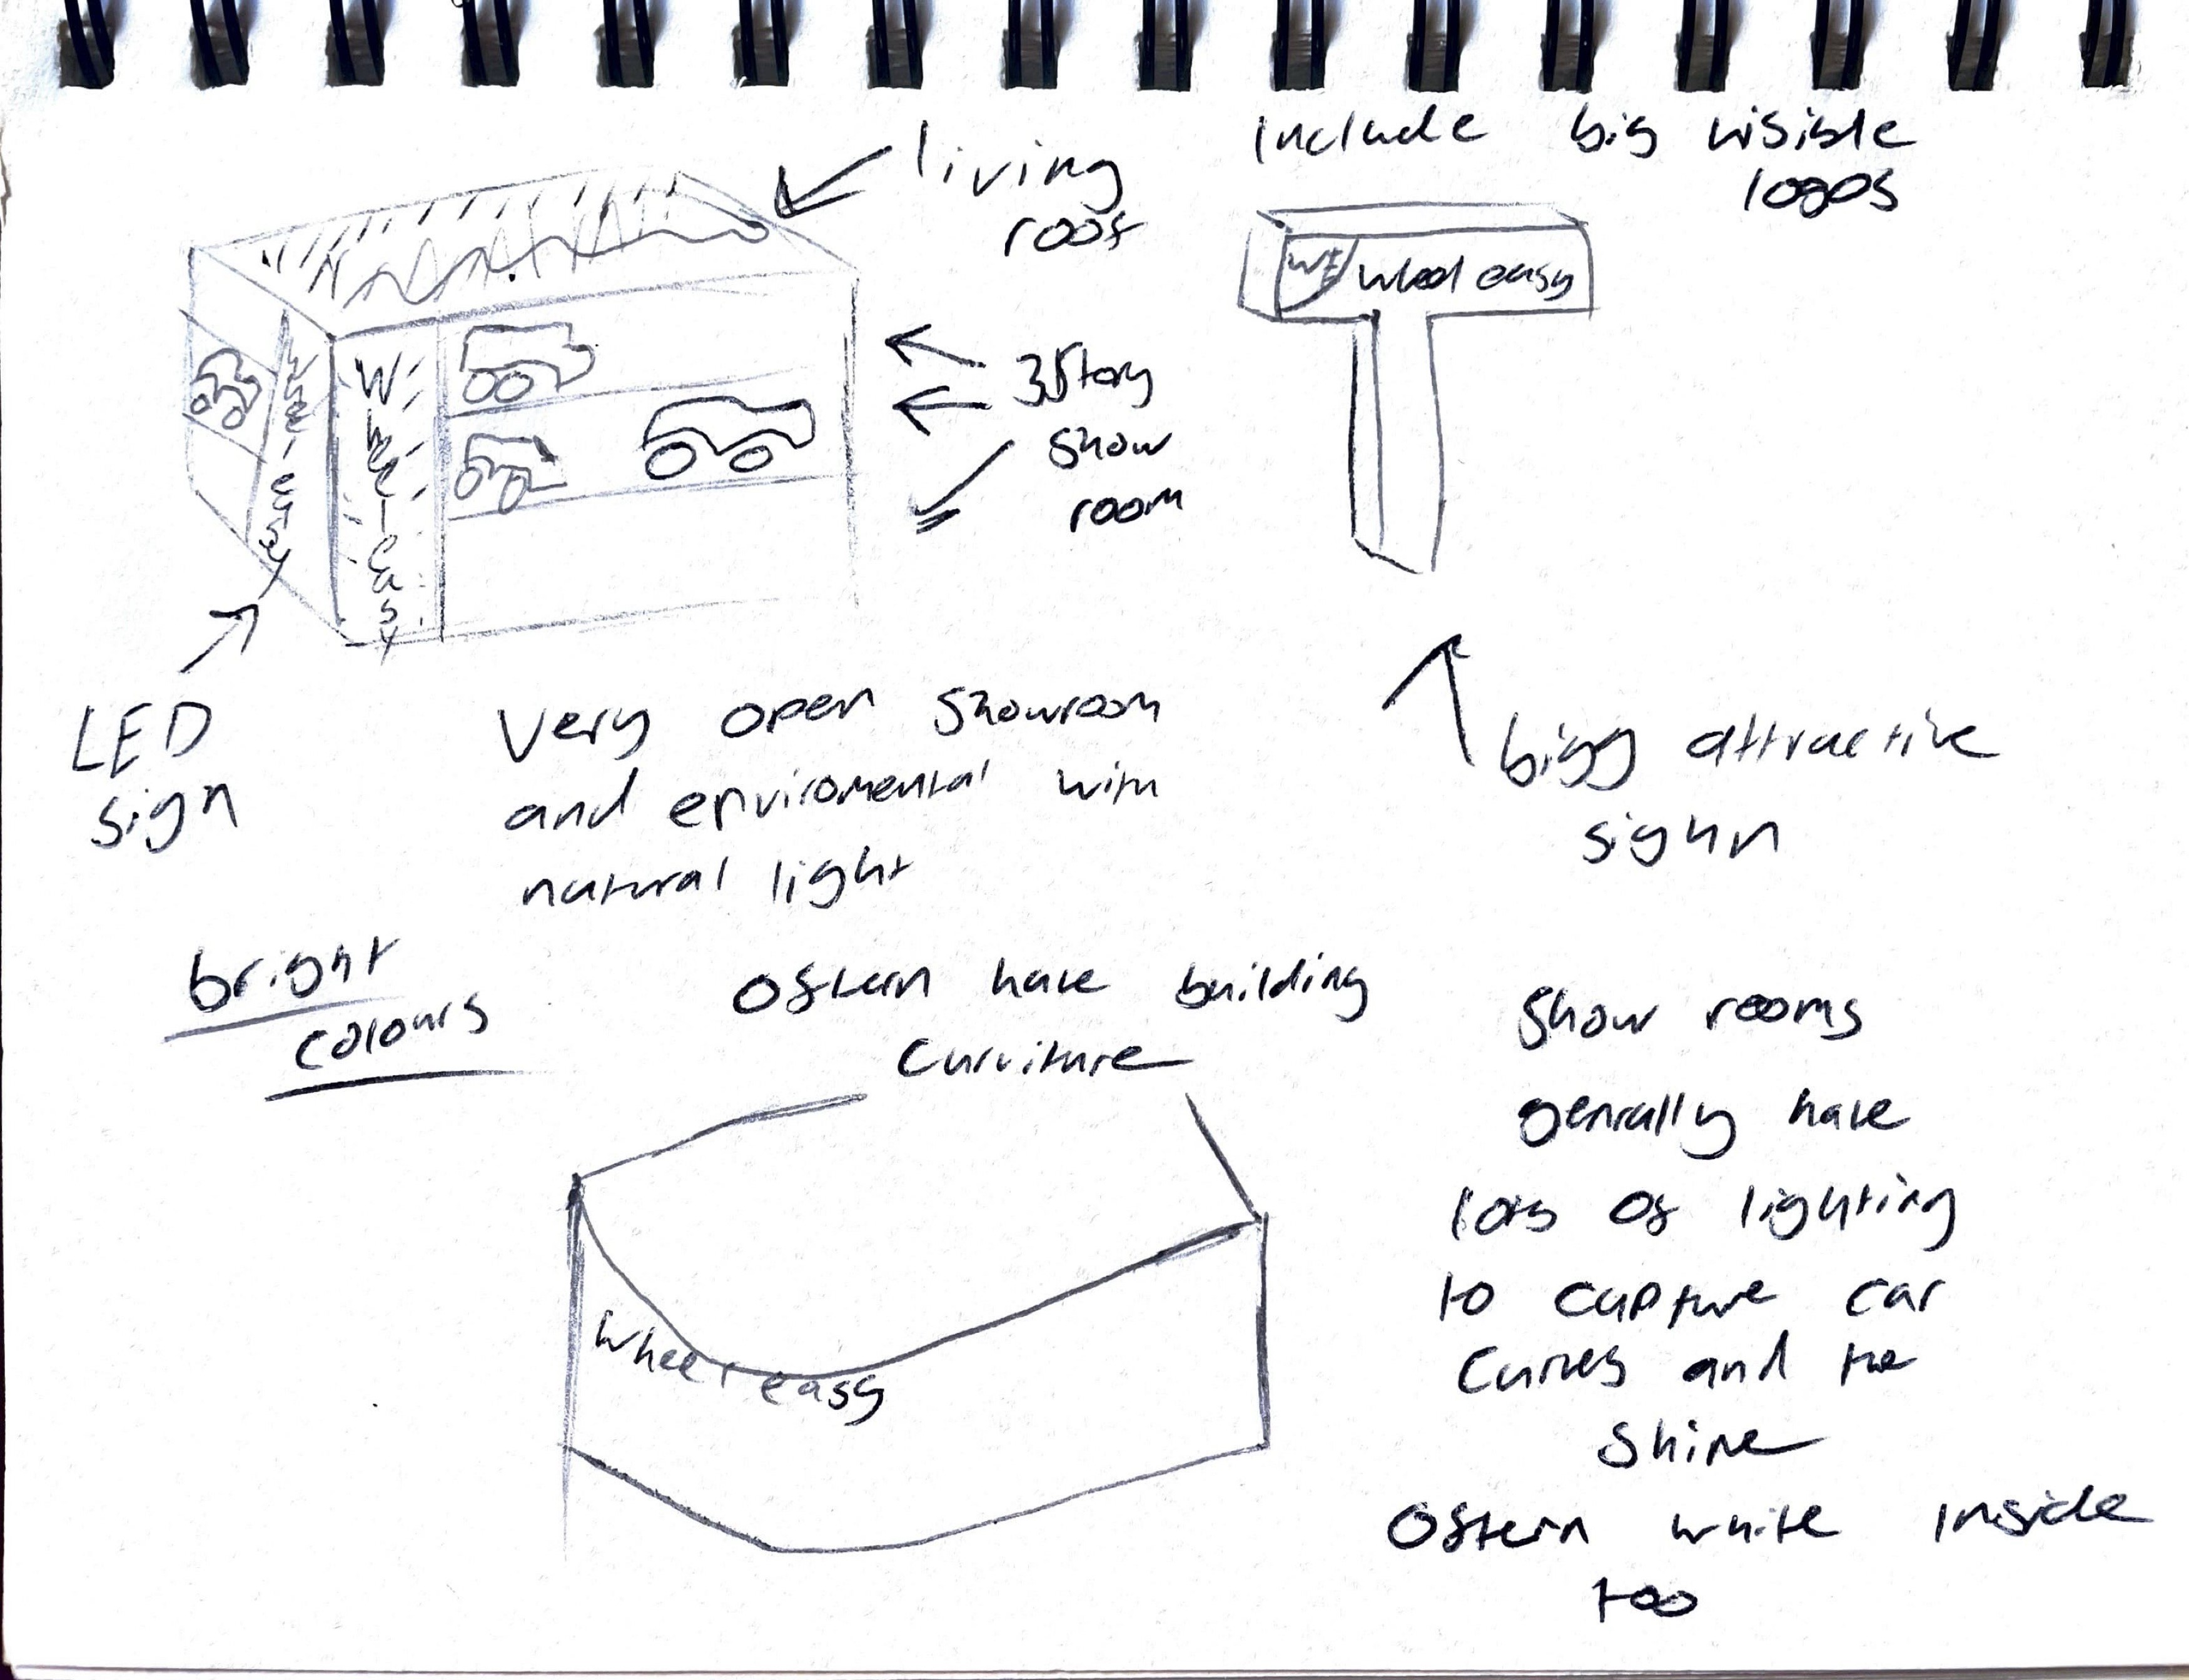 Include big visible
logos
living
roof
WE wheel easy
3 Story
show
room
wheel-easy
wheel-easy
LED
sign
Very open showroom
and enviromental with
natural light
bigg attractive
sighn
bright
colours
Oftern have building
Curviture
wheel easy
Show rooms
genrally have
lots of lighting
to capture car
Curves and the
Shine
Oftern white inside
too